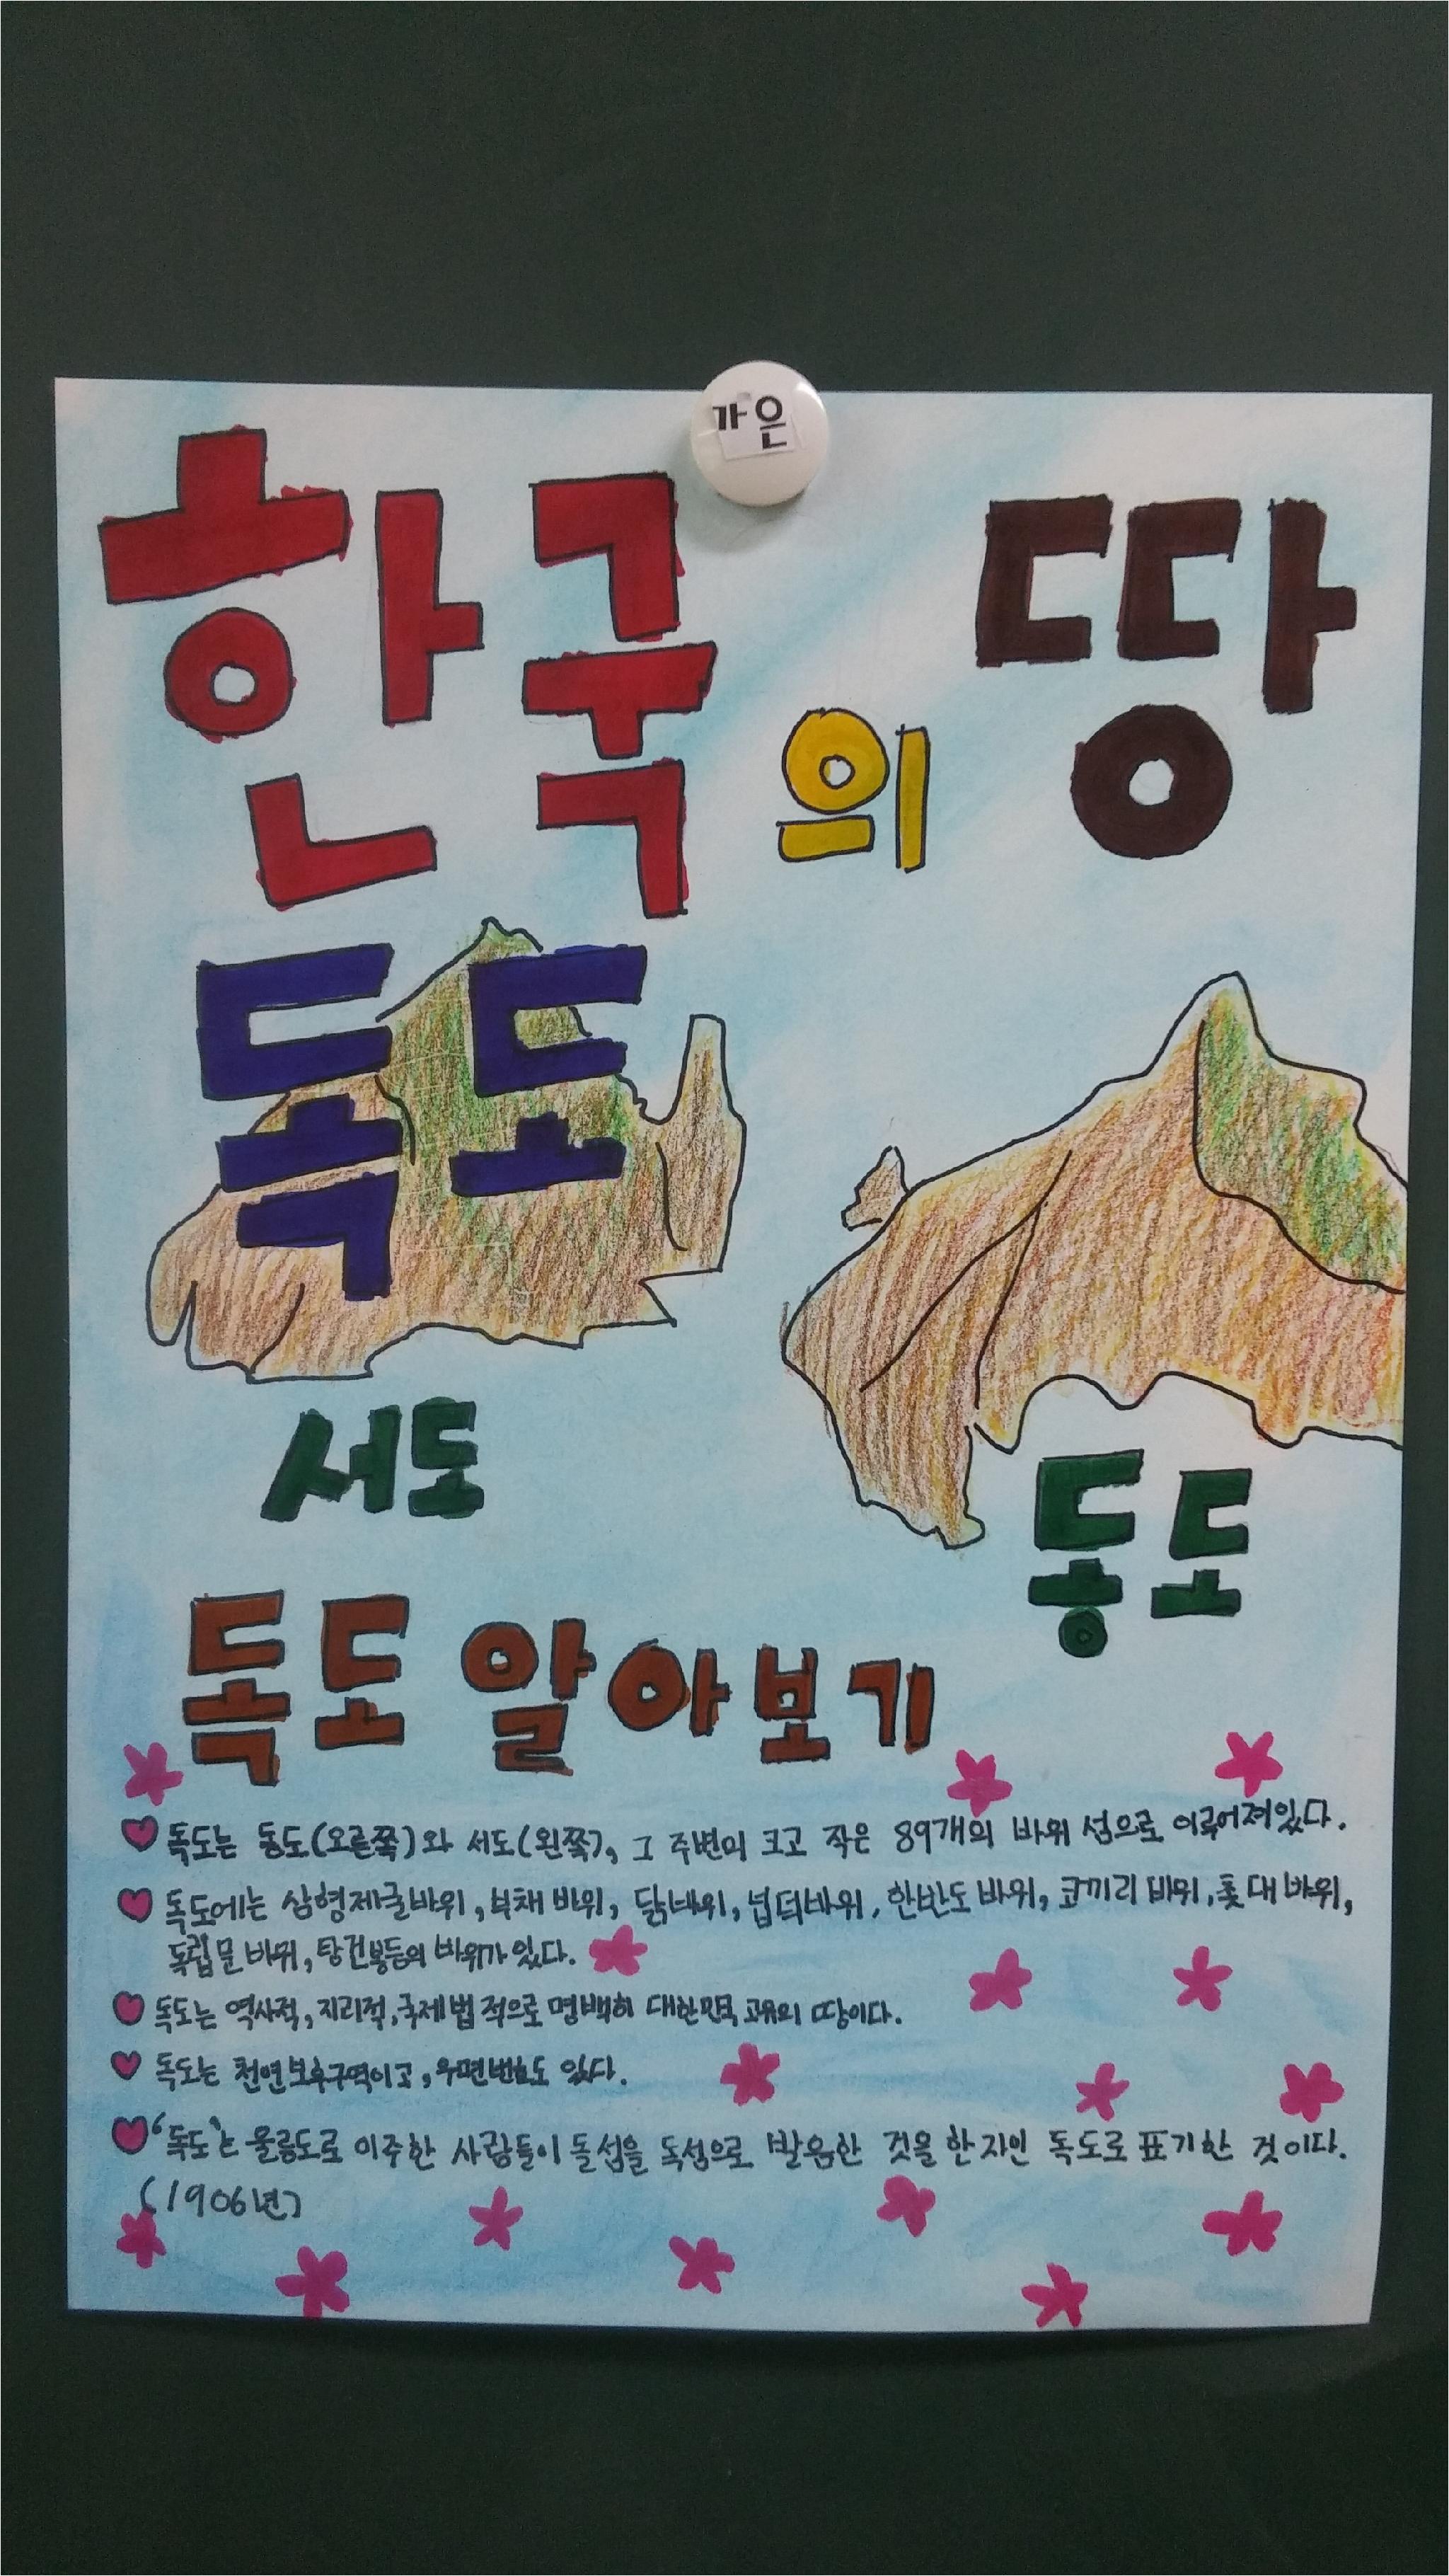 가은
한국의 땅
독도
서도
동도
독도 알아보기
독도는 동도(오른쪽)와 서도(왼쪽), 그 주변의 크고 작은 89개의 바위 섬으로 이루어져있다.
독도에는 삼형제굴바위, 부채바위, 닭바위, 넙덕바위, 한반도 바위, 코끼리 바위, 촛대 바위,
독립문 바위, 탕건봉등의 바위가 있다.
독도는 역사적, 지리적, 국제법적으로 명백히 대한민국 고유의 땅이다.
독도는 천연보호구역이고, 우편번호도 있다.
'독도'는 울릉도로 이주한 사람들이 돌섬을 독섬으로 발음한 것을 한자인 독도로 표기한 것이다.
(1906년)